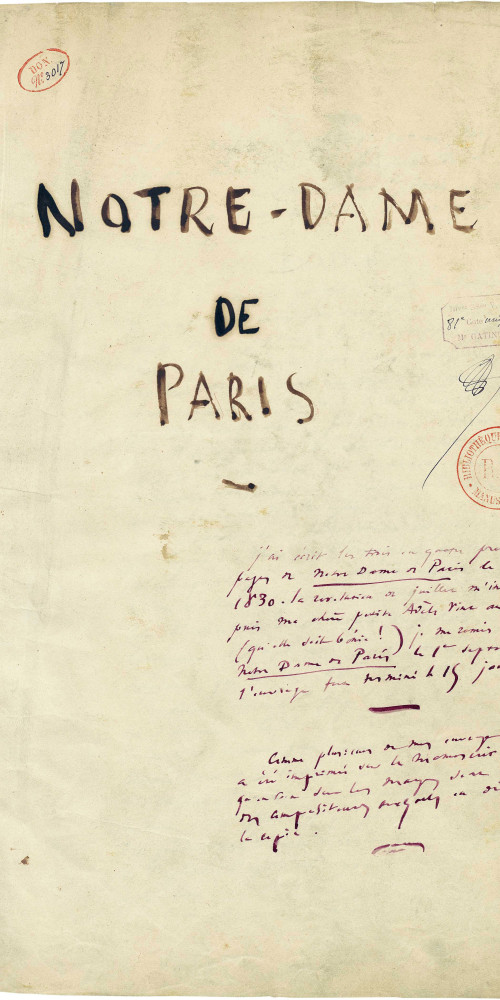 DON
Nº 3017
NOTRE-DAME
DE
PARIS
81e Cote
Me GATIN
BIBLIOTHÈQU
R
MANUS
j'ai écrit les trois ou quatre pre
pages de Notre Dame de Paris le
1830. la révolution de juillet m'in
puis ma chère petite Adèle vint au
(qu'elle soit bénie!) je me remis
Notre Dame de Paris le 1er septem
l'ouvrage fut terminé le 15 jan
Comme plusieurs de mes ouvrages
a été imprimé sur le manuscrit
dans les marges
des compositeurs
la copie.